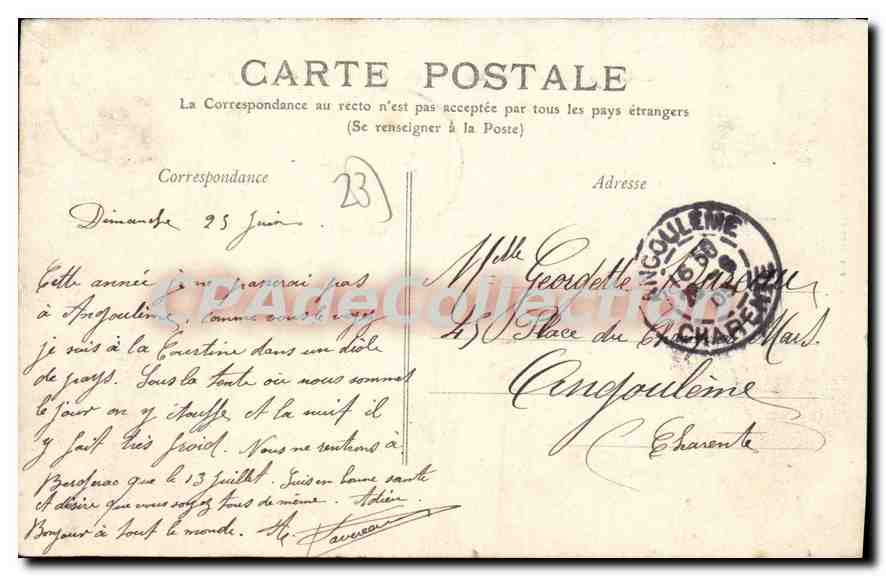 CARTE POSTALE
La Correspondance au recto n'est pas acceptée par tous les pays étrangers
(Se renseigner à la Poste)
Correspondance
Adresse
23
Dimanche 25 Juin.
Cette année je ne passerai pas
à Angoulême. Comme vous le voyez
je suis à la Courtine dans un drôle
de pays. Sous la tente où nous sommes
le jour on y étouffe et la nuit il
y fait très froid. Nous ne rentrons à
Bergerac que le 13 juillet. Suis en bonne santé
et désire que vous soyez tous de même. Adieu.
Bonjour à tout le monde. A. Favereau
Mlle Geordette
45 Place du Champ de Mars.
Angoulême
Charente
ANGOULEME
CHARENTE
CPAdeCollection